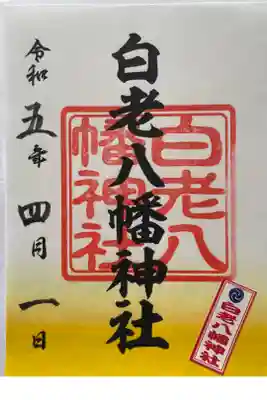 白老八幡神社
白老八
幡神社
令和五年四月一日
白老八幡神社